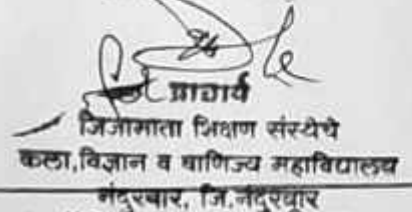 प्राचार्य
जिजामाता शिक्षण संस्थेचे
कला,विज्ञान व वाणिज्य महाविद्यालय
नंदुरबार, जि.नंदुरबार